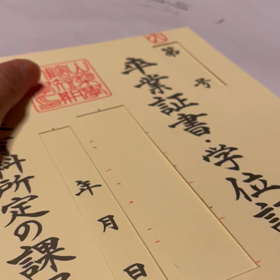 第 号
卒業証書・学位記
年 月 日
科所定の課